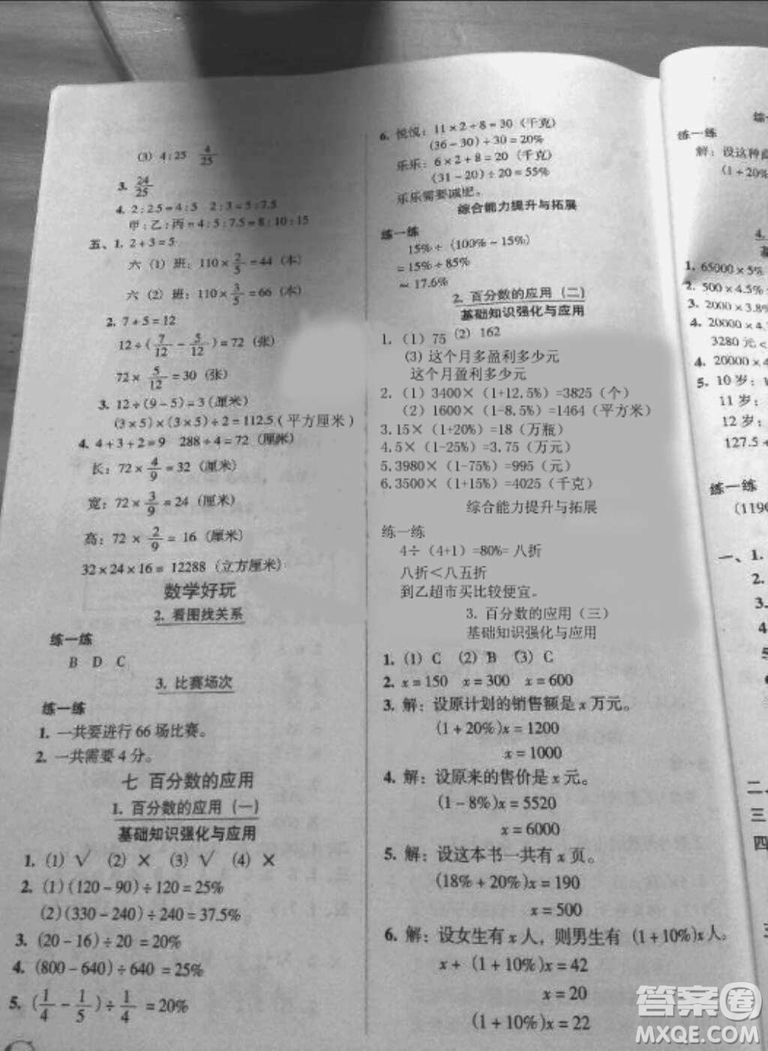 (3) 4:25 4/25
3. 24/25
4. 2:2.5=4:5=5:7.5
甲:乙:丙=4:5:7.5=8:10:15
五、1. 2+3=5
六 (1) 班: 110×2/5=44 (本)
六 (2) 班: 110×3/5=66 (本)
2. 7+5=12
12÷(7/12-5/12)=72 (张)
72×5/12=30 (张)
3. 12÷(9-5)=3(厘米)
(3×5)×(3×5)÷2=112.5(平方厘米)
4. 4+3+2=9 288÷4=72(厘米)
长: 72×4/9=32(厘米)
宽: 72×3/9=24(厘米)
高: 72×2/9=16(厘米)
32×24×16=12288(立方厘米)
数学好玩
2. 看图找关系
练一练
B D C
3. 比赛场次
练一练
1. 一共要进行66场比赛。
2. 一共需要4分。
七 百分数的应用
1. 百分数的应用(一)
基础知识强化与应用
1. (1) √ (2) × (3) √ (4) ×
2. (1)(120-90)÷120=25%
(2)(330-240)÷240=37.5%
3. (20-16)÷20=20%
4. (800-640)÷640=25%
5. (1/4-1/5)÷1/4=20%
6. 悦悦: 11×2+8=30 (千克)
(36-30)÷30=20%
乐乐: 6×2+8=20 (千克)
(31-20)÷20=55%
乐乐需要减肥。
综合能力提升与拓展
练一练
15%÷(100%-15%)
=15%÷85%
≈17.6%
2. 百分数的应用(二)
基础知识强化与应用
1. (1) 75 (2) 162
(3) 这个月多盈利多少元
这个月盈利多少元
2. (1) 3400×(1+12.5%)=3825(个)
(2) 1600×(1-8.5%)=1464(平方米)
3.15×(1+20%)=18(万瓶)
4.5×(1-25%)=3.75(万元)
5.3980×(1-75%)=995(元)
6.3500×(1+15%)=4025(千克)
综合能力提升与拓展
练一练
4÷(4+1)=80%=八折
八折<八五折
到乙超市买比较便宜。
3. 百分数的应用(三)
基础知识强化与应用
1. (1) C (2) B (3) C
2. x=150 x=300 x=600
3. 解: 设原计划的销售额是x万元。
(1+20%)x=1200
x=1000
4. 解: 设原来的售价是x元。
(1-8%)x=5520
x=6000
5. 解: 设这本书一共有x页。
(18%+20%)x=190
x=500
6. 解: 设女生有x人,则男生有(1+10%)x人。
x+(1+10%)x=42
x=20
(1+10%)x=22
综
练一练
解: 设这种
(1+20%)
4.
基
1. 65000×5%
2. 500×4.5%
3. 2000×3.8%
3280元<
4. 20000×4
5. 10岁:
11岁:
12岁:
127.5
练一练
(1190
一、1.
2.
3.
4.
5.
二、
三
四
答案圈
MXQE.COM